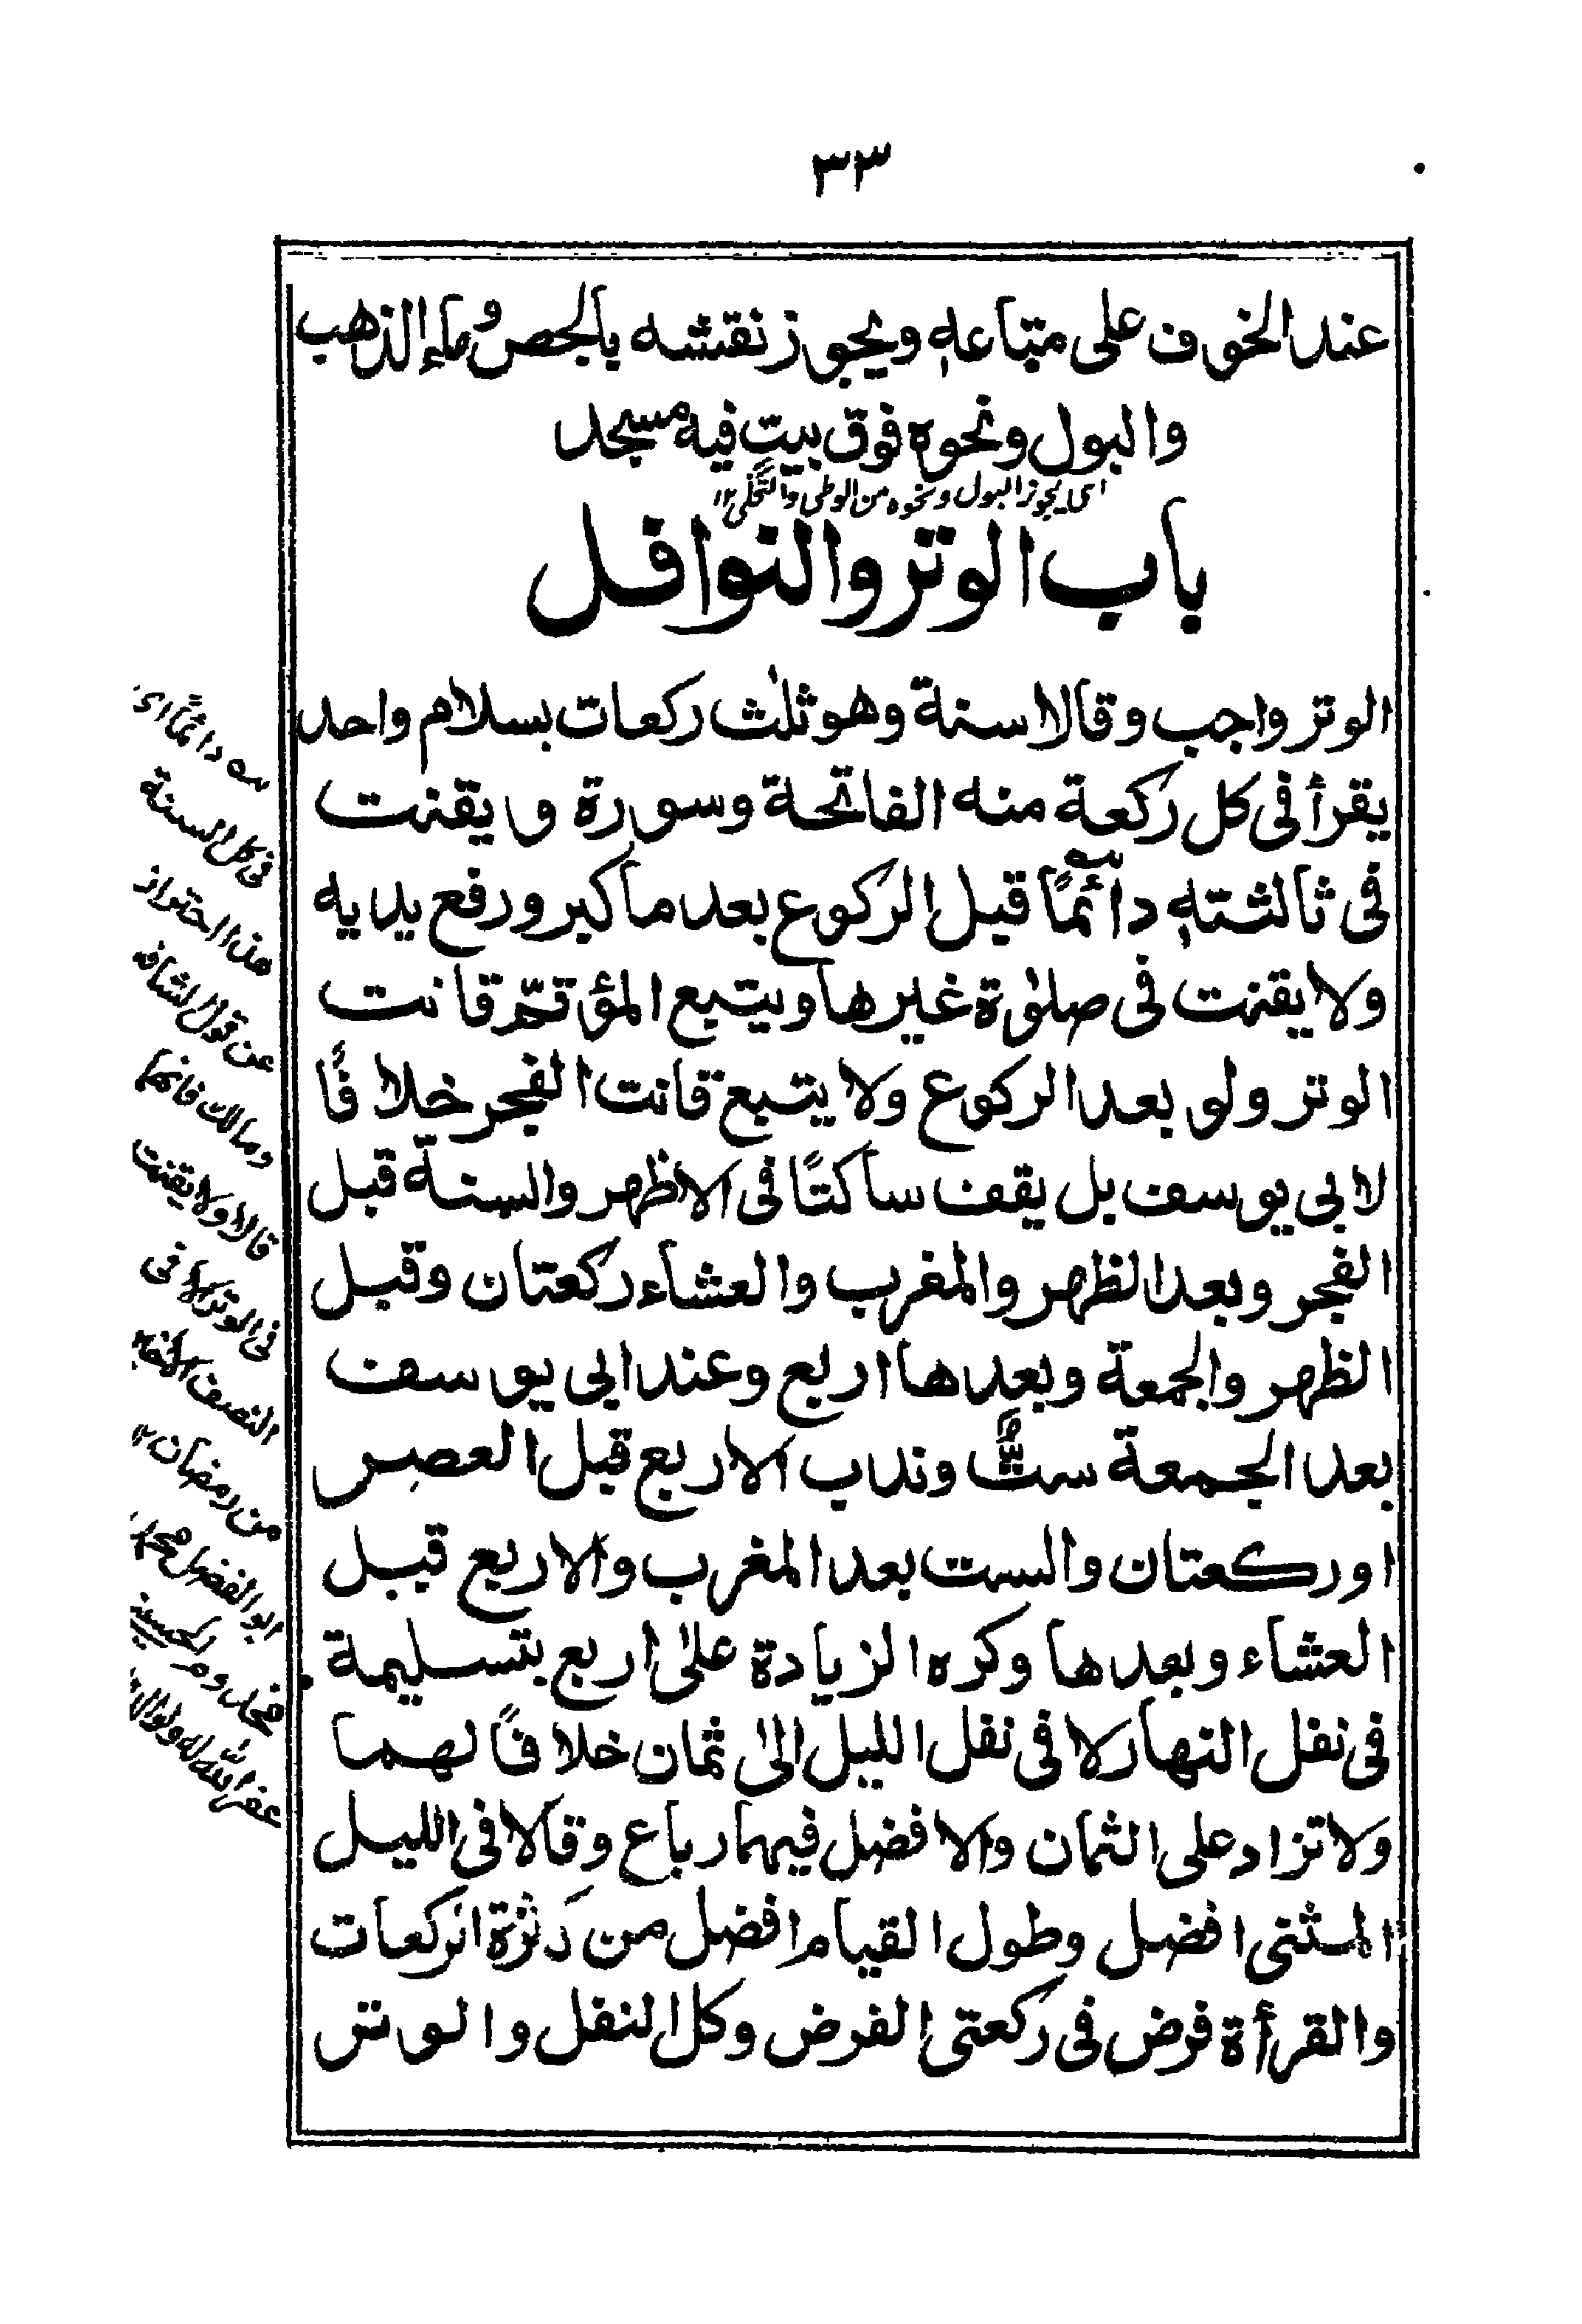 ٣٣
عند الخوف على متاعه ويجوز نقشه بالجص وماء الذهب
والبول ونحوه فوق بيت فيه مسجد
اى يجوز البول ونحوه من الوطى والتخلى ١٢
باب الوتر والنوافل
الوتر واجب وقالا سنة وهو ثلٰث ركعات بسلام واحد
يقرأ فى كل ركعة منه الفاتحة وسورة ويقنت
فى ثالثته دائمًا قبل الركوع بعد ما كبر ورفع يديه
ولا يقنت فى صلوٰة غيرها ويتبع المؤتم قانت
الوتر ولو بعد الركوع ولا يتبع قانت الفجر خلافًا
لابى يوسف بل يقف ساكتًا فى الاظهر والسنة قبل
الفجر وبعد الظهر والمغرب والعشاء ركعتان وقبل
الظهر والجمعة وبعدها اربع وعند ابى يوسف
بعد الجمعة ستٌّ وندب الاربع قبل العصر
او ركعتان والست بعد المغرب والاربع قبل
العشاء وبعدها وكره الزيادة علىٰ اربع بتسليمة
فى نفل النهار لا فى نفل الليل الىٰ ثمان خلافًا لهما
ولا تزاد على الثمان والافضل فيهما رباع وقالا فى الليل
المثنى افضل وطول القيام افضل من كثرة الركعات
والقرأة فرض فى ركعتى الفرض وكل النفل والوتر
دائمًا اى
فى كل السنة
هذا احتراز
عن قول الشافعى
ومالك فانهما
قالا ولا يقنت
فى الوتر الا فى
النصف الاخير
من رمضان ١٢
ابو الفضل محمد
غفر الله له ولوالديه